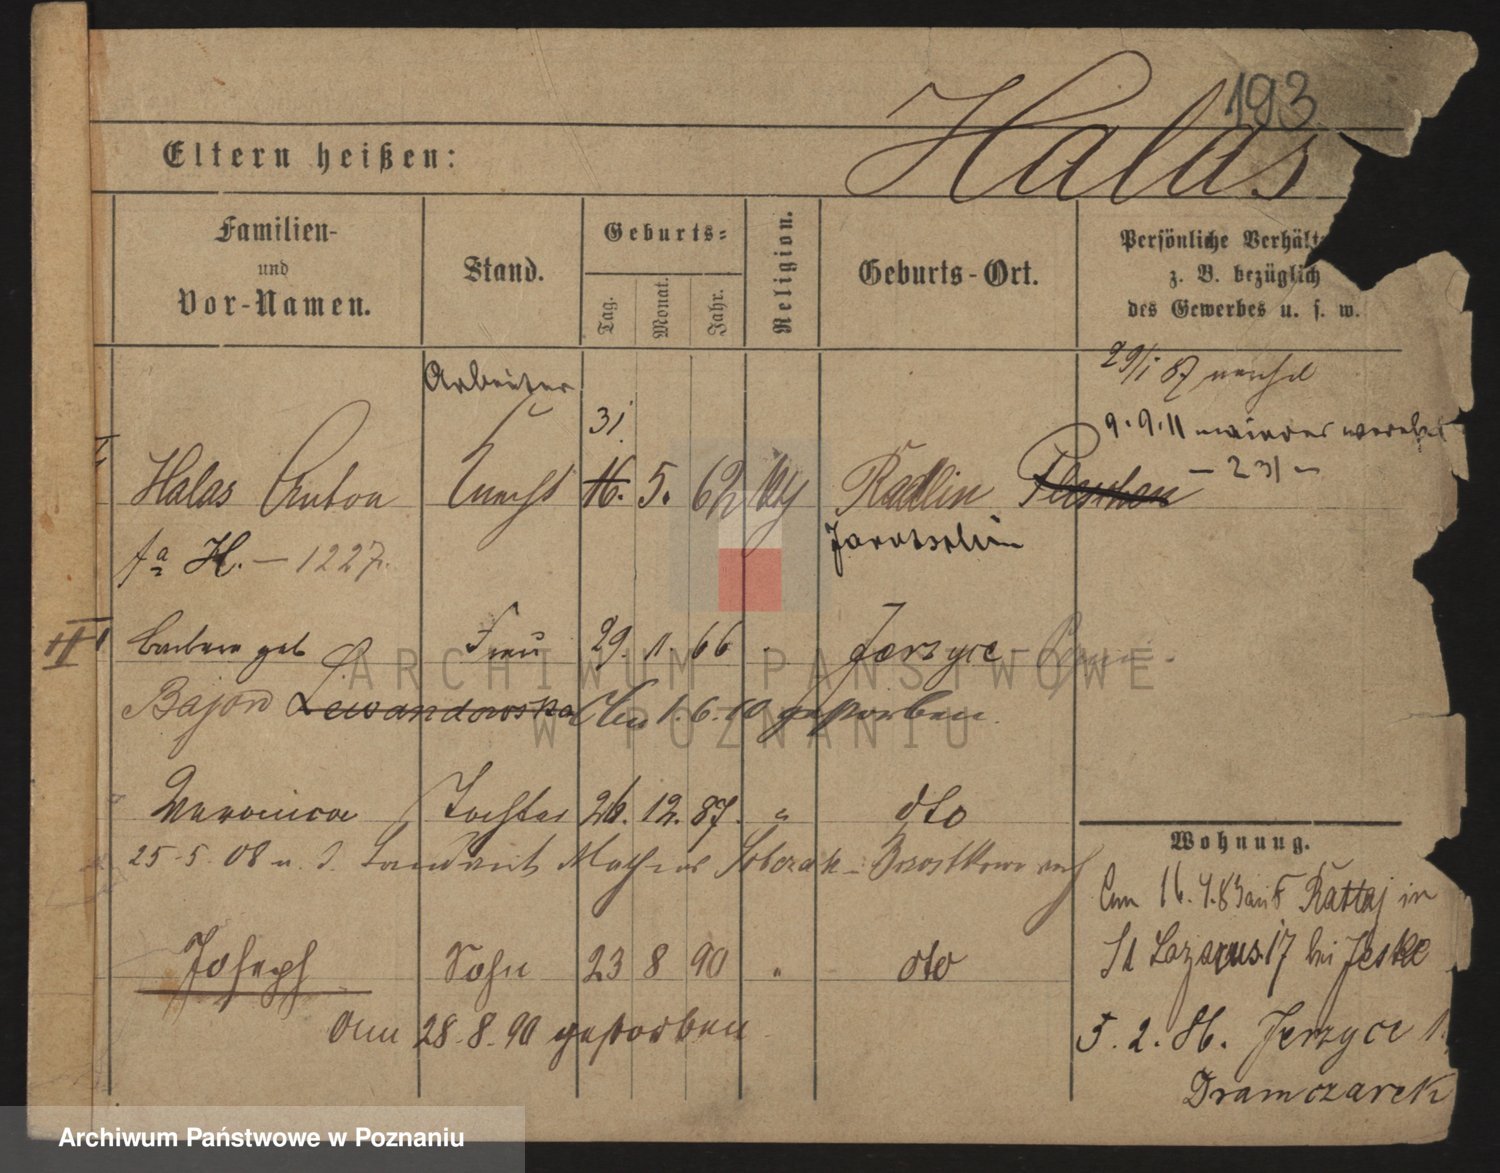 193
Halas
Eltern heißen:
Familien-
und
Vor-Namen.
Stand.
Geburts-
Tag.
Monat.
Jahr.
Religion.
Geburts-Ort.
Persönliche Verhält
z. B. bezüglich
des Gewerbes u. s. w.
29/1 87
Arbeiter
31.
9.9.11
- 231 -
Halas Anton Knecht 16. 5. 62 Radlin Pleschen
Jarotschin
fa H. - 1227.
III
Barbara geb Frau 29. 11. 66 Jerzyce
Bajon Lewandowska 1.6.10 gestorben.
Veronica Tochter 26. 12. 87. " dto
25-5.08 Sobczak - Brostkowo
Joseph Sohn 23 8 90 " dto
Am 28.8.90 gestorben.
Wohnung.
Am 16. 4.83 auf Rattaj in
St Lazarus 17 bei Jeske
5.2.86. Jerzyce 1
Dramczarek
ARCHIWUM PAŃSTWOWE
W POZNANIU
Archiwum Państwowe w Poznaniu